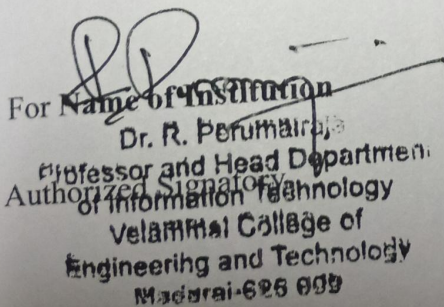 For Name of Institution
Dr. R. Perumalraja
Professor and Head Department
Authorized Signatory
of Information Technology
Velammal College of
Engineering and Technology
Madurai-625 009